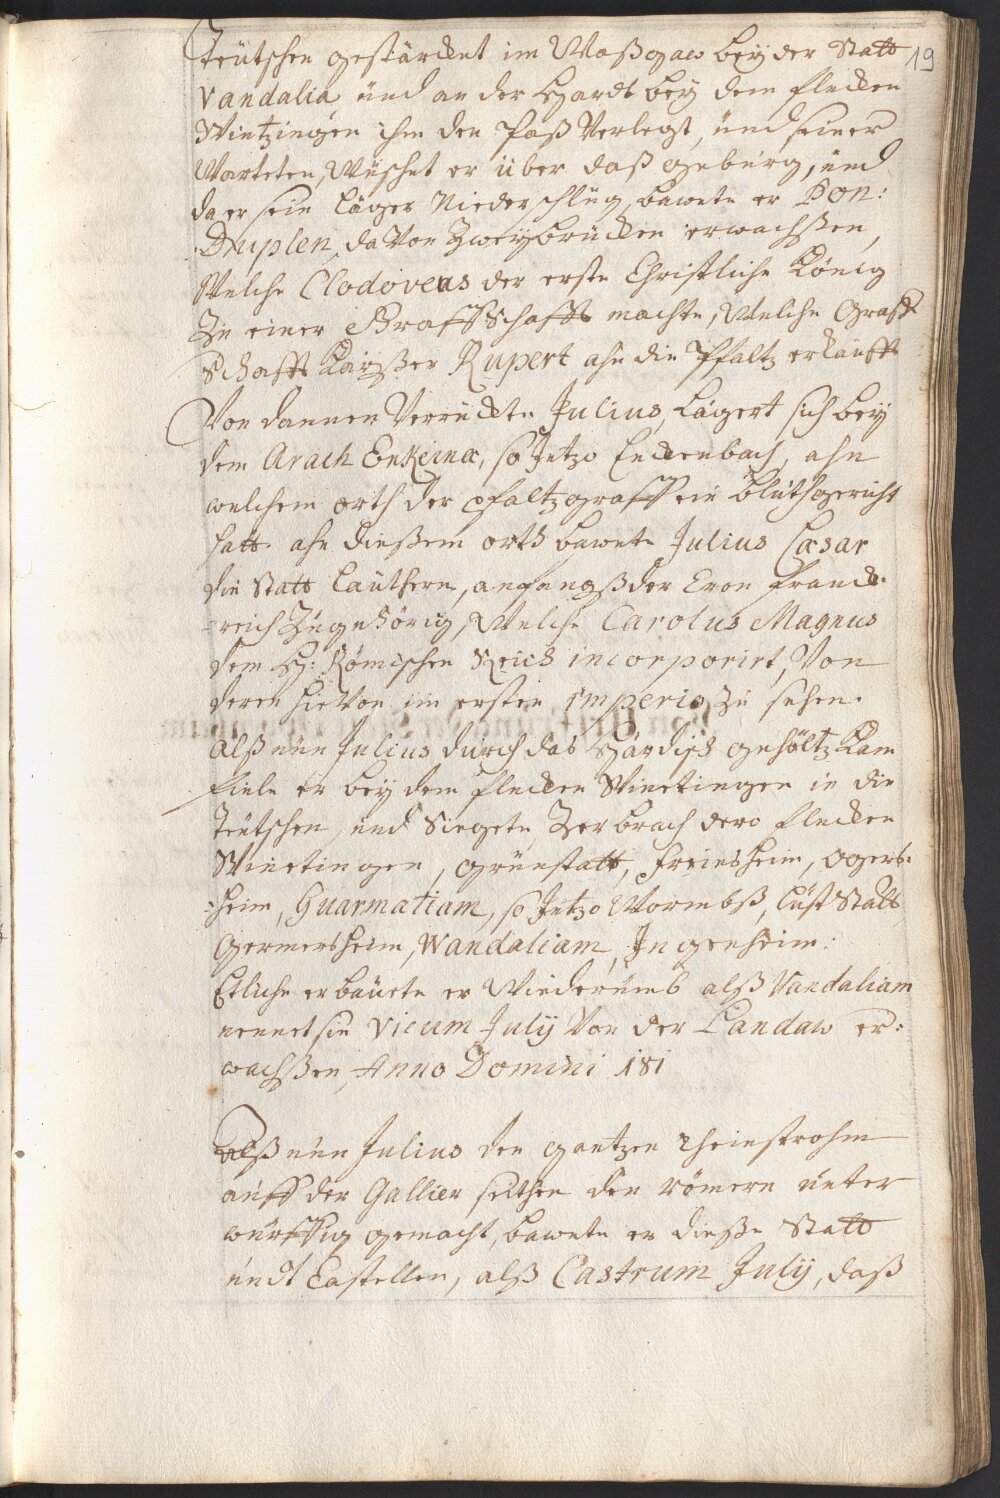 19
Teütschen gestärcket im Waßgaw bey der Statt
Vandalia ünd an der Hardt bey dem flecken
Wintzingen ihm den Paß Verlegt, ünd seiner
Warteten, Wüschet er über daß gebürg, ünd
da er sein Läger Niederschlüg, bawete er Pon:
Duplen, da Von Zweÿbrücken erwachßen,
Welche Clodoveus der erste Christliche König
Zü einer Graffschafft machte, Welche Graff
schafft Kaÿßer Rupert ahn die Pfaltz erkaufft
Von dannen Verrückte Julius, Lägert sich beÿ
dem Arach Enkeinæ, so Jetzo Enckenbach, ahn
welchem orth der Pfaltzgraff ein blüthgericht
hatt. ahn dießem orth bawete Julius Cæsar
die Statt Lauthern, anfangß der Cron Franck-
reich Zügehörig, Welche Carolus Magnus
dem H: Römischen Reich incorporirt, Von
deren hieVon im ersten Imperio zü sehen.
Alß nün Julius dürch das Hardisch gehöltz kam
fiele er beÿ dem flecken Winetingen in die
Teütschen, ünd Siegete, Zerbrach dero flecken
Winetingen, Grünstatt, Freinsheim, Ogers-
heim, Guarmatiam, so Jetzo Wormbß, Lüst Statt
Germersheim, Wandaliam, Ingenheim.
Etliche erbaüete er Wiederümb alß Vandaliam
nennet sie Vicum Julÿ Von der Landaw er-
wachßen, Anno Domini 181
Alß nün Julius den gantzen Rheinstrohm
auff der Gallier seithen den Römern ünter
würffig gemacht, bawete er dieße Statt
ündt Castellen, alß Castrum Julÿ, daß